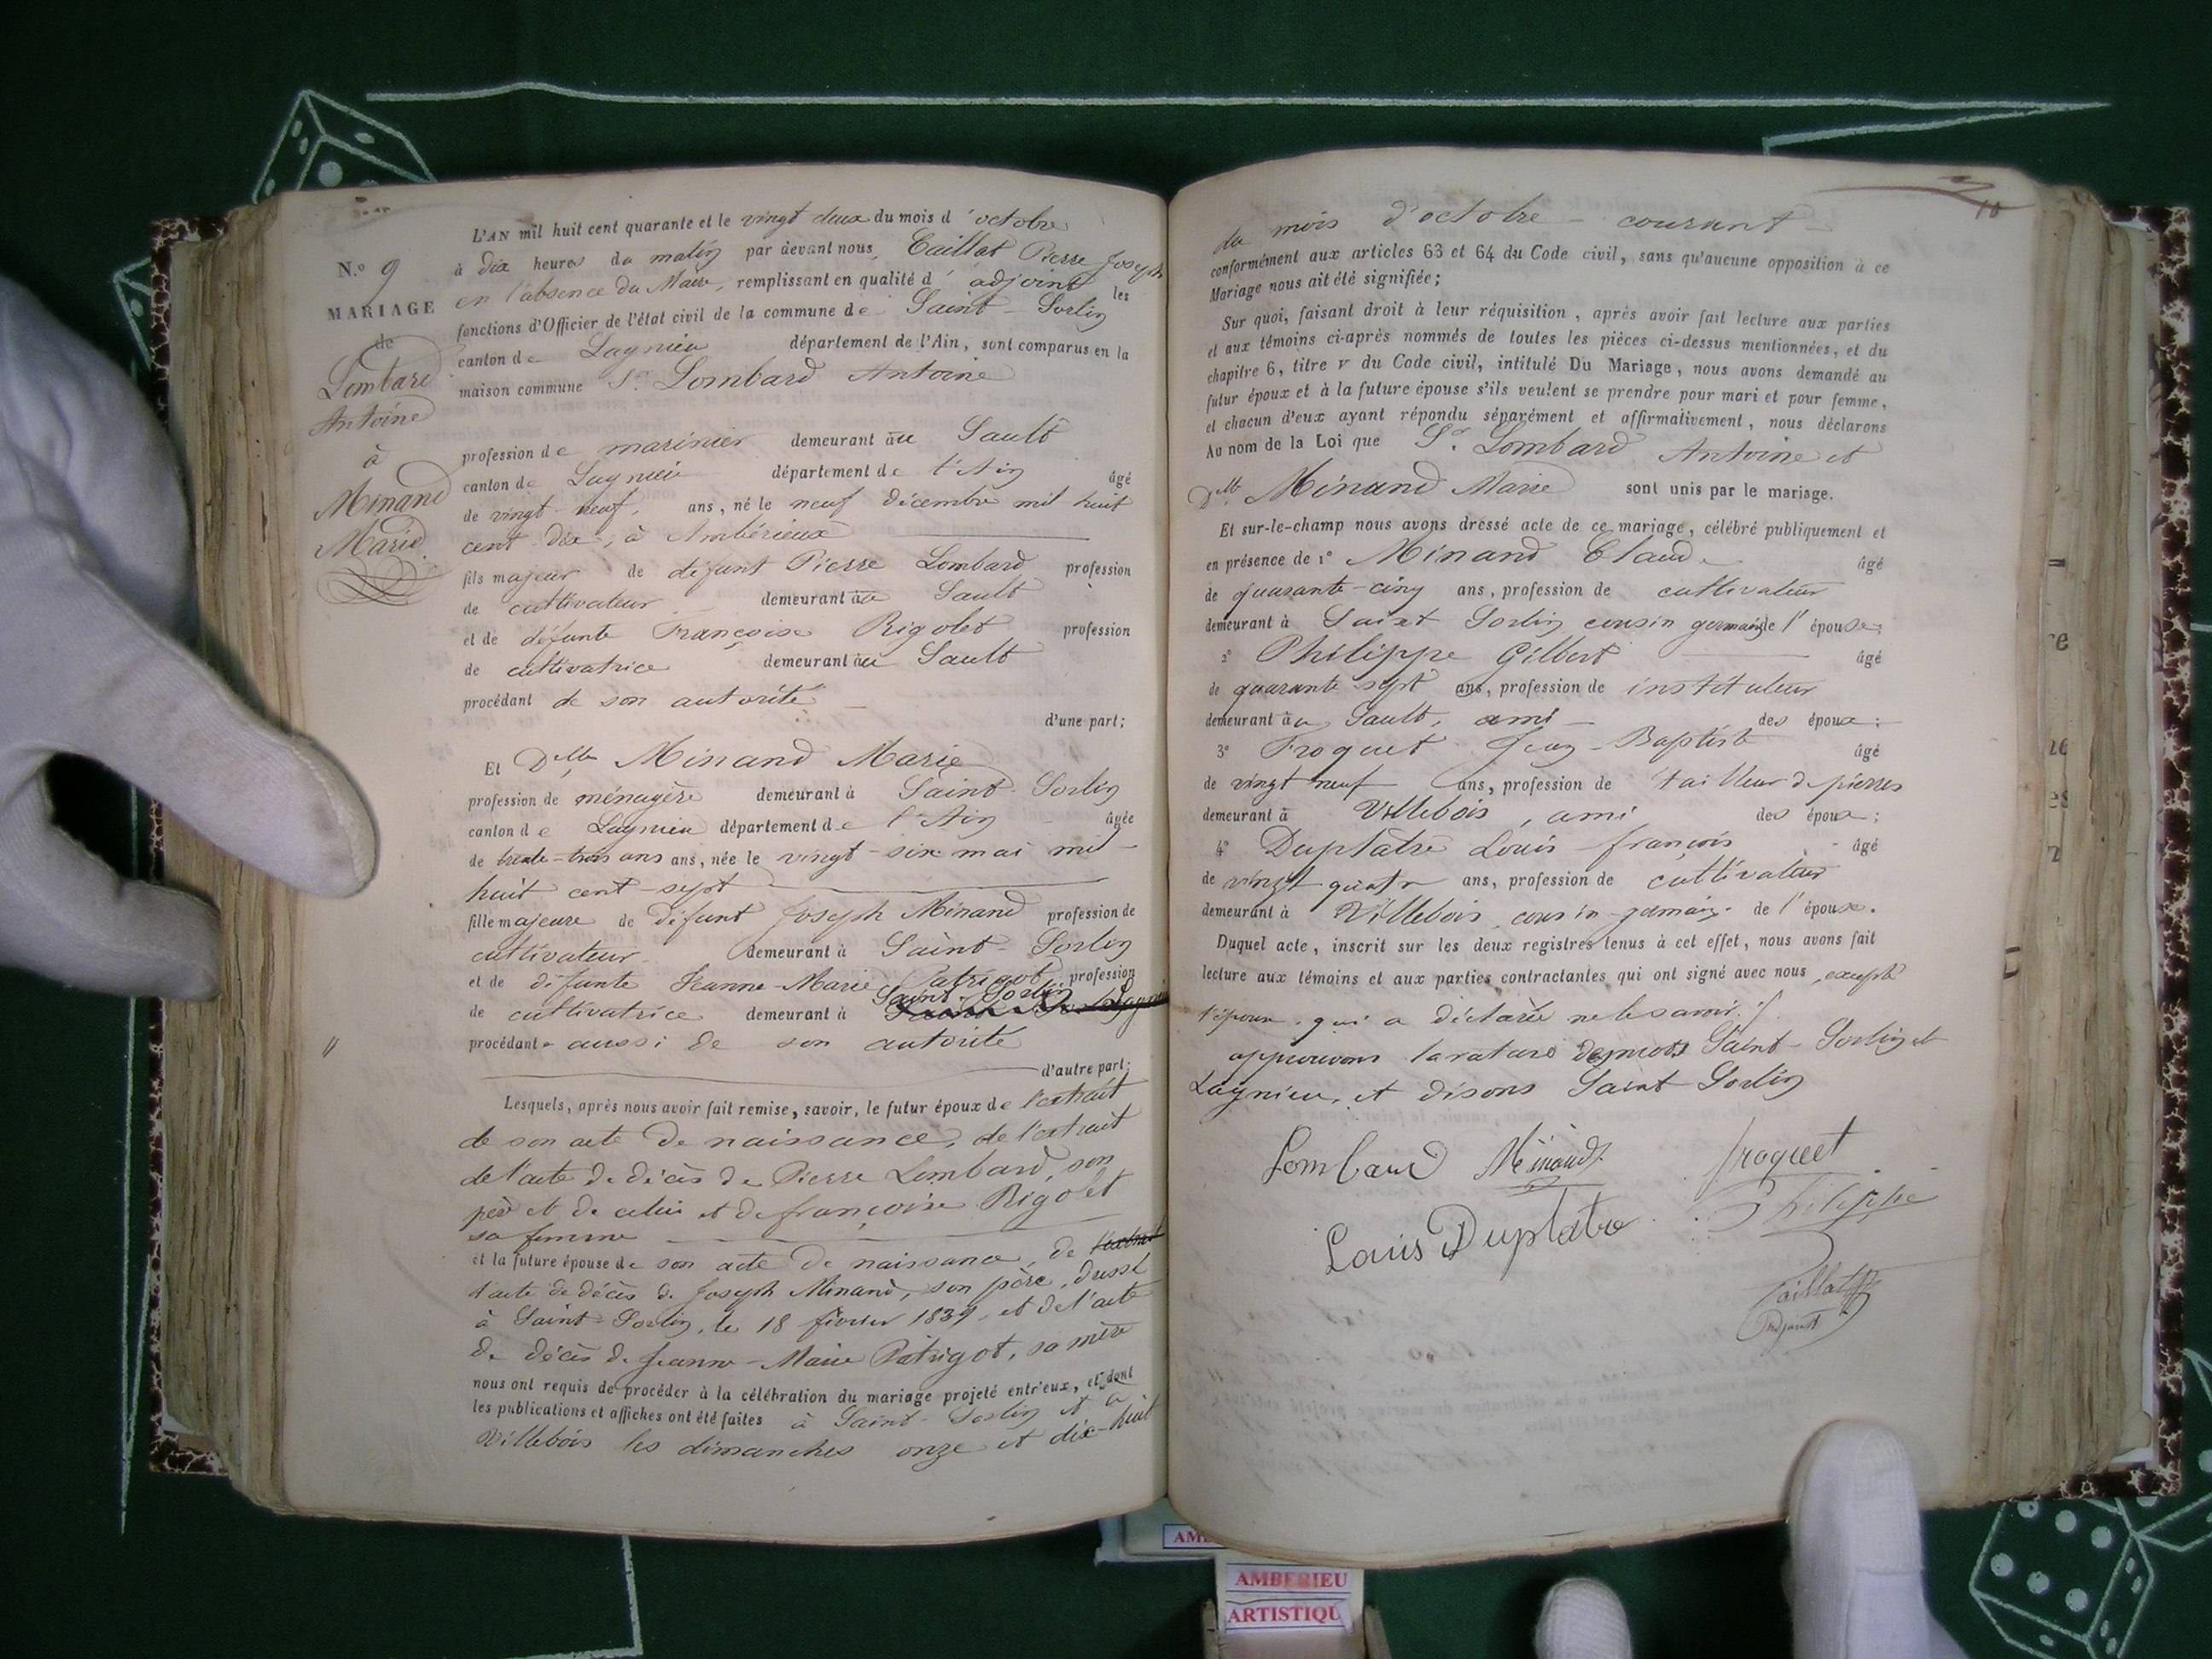 N.o 9
MARIAGE
de
Lombard
Antoine
à
Minand
Marie
L'AN mil huit cent quarante et le vingt deux du mois d'octobre
à dix heures du matin par devant nous, Caillat Pierre Joseph
en l'absence du Maire, remplissant en qualité d'adjoint les
fonctions d'Officier de l'état civil de la commune de Saint-Sorlin
canton de Lagnieu département de l'Ain, sont comparus en la
maison commune Sr. Lombard Antoine
profession de marinier demeurant au Sault
canton de Lagnieu département de l'Ain âgé
de vingt-neuf, ans, né le neuf décembre mil huit
cent dix, à Ambérieux
fils majeur de défunt Pierre Lombard profession
de cultivateur demeurant au Sault
et de défunte Françoise Rigolet profession
de cultivatrice demeurant au Sault
procédant de son autorité
d'une part;
Et Dlle Minand Marie
profession de ménagère demeurant à Saint-Sorlin
canton de Lagnieu département de l'Ain âgée
de trente-trois ans ans, née le vingt-six mai mil-
huit cent-sept
fille majeure de défunt Joseph Minand profession de
cultivateur demeurant à Saint-Sorlin
et de défunte Jeanne-Marie Patrigot profession
Saint-Sorlin
de cultivatrice demeurant à
procédant aussi de son autorité
d'autre part:
Lesquels, après nous avoir fait remise, savoir, le futur époux de l'extrait
de son acte de naissance, de l'extrait
de l'acte de décès de Pierre Lombard, son
père et de celui et de françoise Rigolet
sa femme
et la future épouse de son acte de naissance, de l'extrait
l'acte de décès de Joseph Minand, son père, dressé
à Saint-Sorlin, le 18 février 1839, et de l'acte
de décès de Jeanne-Marie Patrigot, sa mère
nous ont requis de procéder à la célébration du mariage projeté entr'eux, et dont
les publications et affiches ont été faites à Saint-Sorlin et à
Villebois les dimanches onze et dix-huit
10
du mois d'octobre - courant -
conformément aux articles 63 et 64 du Code civil, sans qu'aucune opposition à ce
Mariage nous ait été signifiée;
Sur quoi, faisant droit à leur réquisition, après avoir fait lecture aux parties
et aux témoins ci-après nommés de toutes les pièces ci-dessus mentionnées, et du
chapitre 6, titre v du Code civil, intitulé Du Mariage, nous avons demandé au
futur époux et à la future épouse s'ils veulent se prendre pour mari et pour femme,
et chacun d'eux ayant répondu séparément et affirmativement, nous déclarons
Au nom de la Loi que Sr. Lombard Antoine et
Dlle Minand Marie sont unis par le mariage.
Et sur-le-champ nous avons dressé acte de ce mariage, célébré publiquement et
en présence de 1o Minand Claude âgé
de quarante-cinq ans, profession de cultivateur
demeurant à Saint Sorlin cousin germain de l'épouse;
2o Philippe Gilbert âgé
de quarante sept ans, profession de instituteur
demeurant au Sault, ami - des époux;
3o Froquet Jean-Baptiste âgé
de vingt neuf ans, profession de tailleur de pierres
demeurant à Villebois, ami des époux;
4o Duplatre Louis-françois âgé
de vingt quatre ans, profession de cultivateur
demeurant à Villebois cousin-germain de l'épouse.
Duquel acte, inscrit sur les deux registres tenus à cet effet, nous avons fait
lecture aux témoins et aux parties contractantes qui ont signé avec nous, excepté
l'épouse, qui a déclaré ne le savoir.
approuvons la rature des mots Saint-Sorlin et
Lagnieu, et disons Saint Sorlin
Lombard Minand froquet
Louis Duplatre Philippe
Caillat
adjoint
AMBERIEU
ARTISTIQU